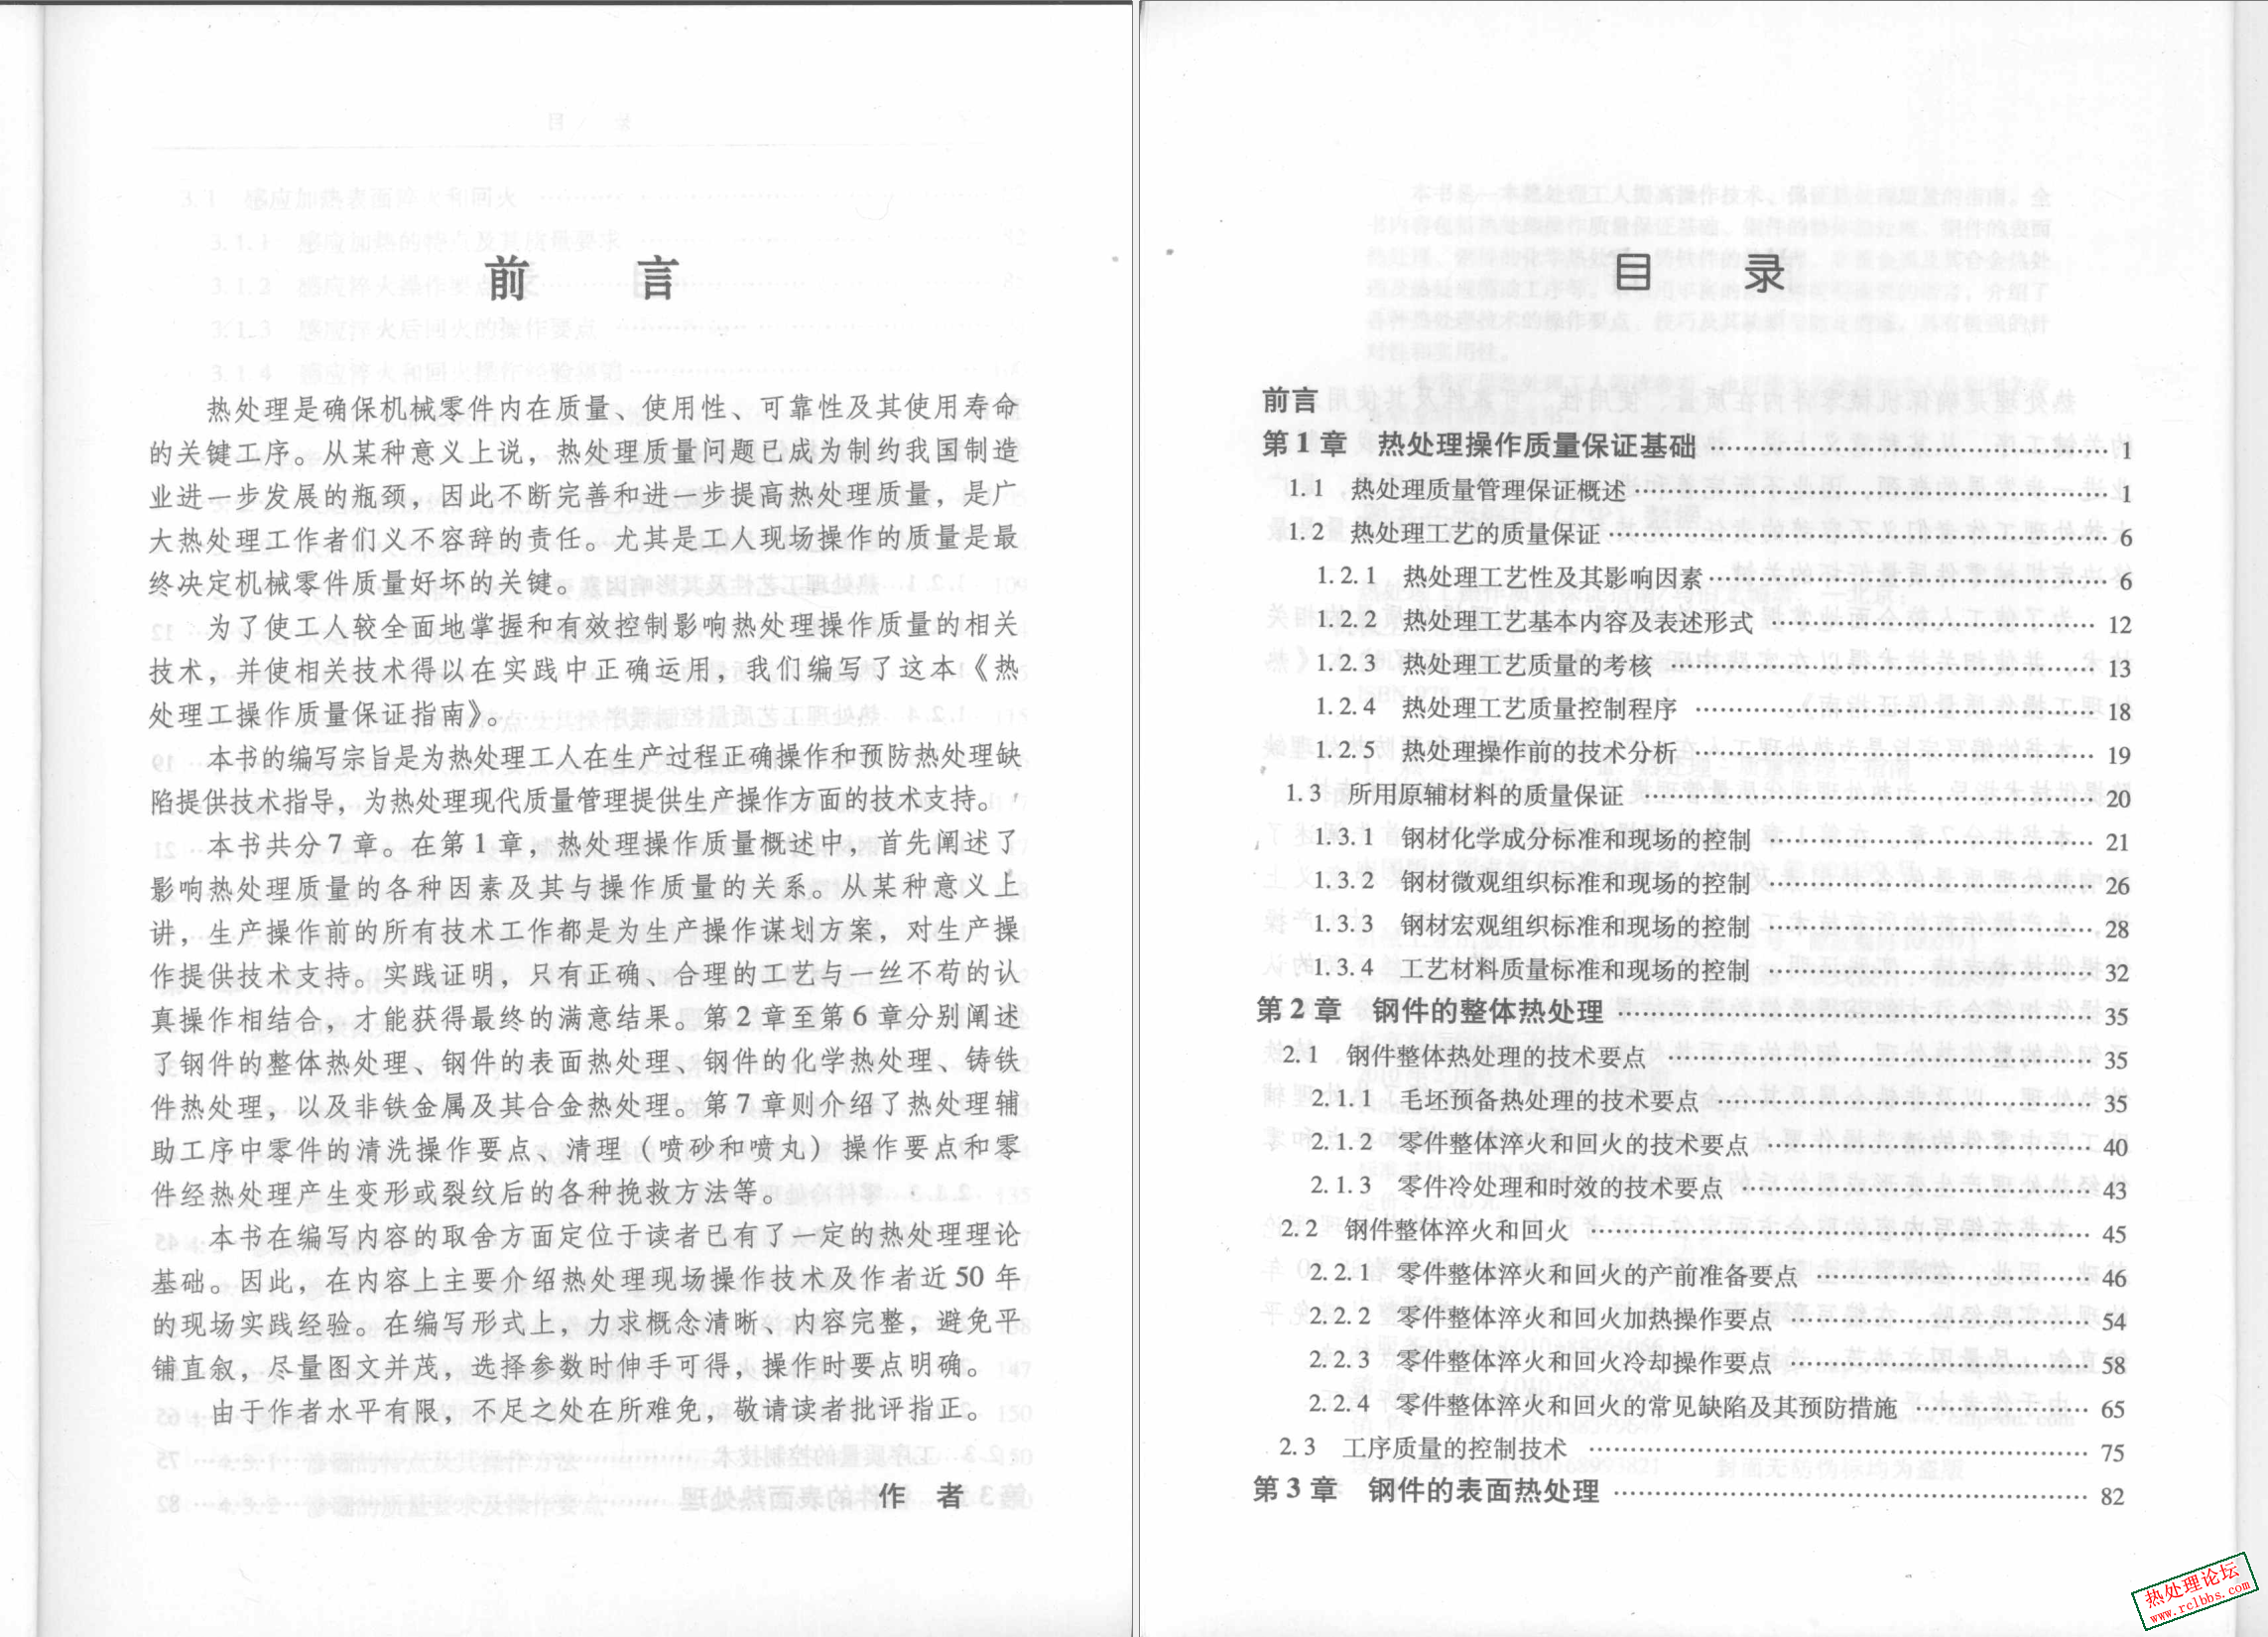 前 言
热处理是确保机械零件内在质量、使用性、可靠性及其使用寿命
的关键工序。从某种意义上说，热处理质量问题已成为制约我国制造
业进一步发展的瓶颈，因此不断完善和进一步提高热处理质量，是广
大热处理工作者们义不容辞的责任。尤其是工人现场操作的质量是最
终决定机械零件质量好坏的关键。
为了使工人较全面地掌握和有效控制影响热处理操作质量的相关
技术，并使相关技术得以在实践中正确运用，我们编写了这本《热
处理工操作质量保证指南》。
本书的编写宗旨是为热处理工人在生产过程正确操作和预防热处理缺
陷提供技术指导，为热处理现代质量管理提供生产操作方面的技术支持。
本书共分7章。在第1章，热处理操作质量概述中，首先阐述了
影响热处理质量的各种因素及其与操作质量的关系。从某种意义上
讲，生产操作前的所有技术工作都是为生产操作谋划方案，对生产操
作提供技术支持。实践证明，只有正确、合理的工艺与一丝不苟的认
真操作相结合，才能获得最终的满意结果。第2章至第6章分别阐述
了钢件的整体热处理、钢件的表面热处理、钢件的化学热处理、铸铁
件热处理，以及非铁金属及其合金热处理。第7章则介绍了热处理辅
助工序中零件的清洗操作要点、清理（喷砂和喷丸）操作要点和零
件经热处理产生变形或裂纹后的各种挽救方法等。
本书在编写内容的取舍方面定位于读者已有了一定的热处理理论
基础。因此，在内容上主要介绍热处理现场操作技术及作者近50年
的现场实践经验。在编写形式上，力求概念清晰、内容完整，避免平
铺直叙，尽量图文并茂，选择参数时伸手可得，操作时要点明确。
由于作者水平有限，不足之处在所难免，敬请读者批评指正。
作 者
目 录
前言
第1章 热处理操作质量保证基础 …… 1
1.1 热处理质量管理保证概述 …… 1
1.2 热处理工艺的质量保证 …… 6
1.2.1 热处理工艺性及其影响因素 …… 6
1.2.2 热处理工艺基本内容及表述形式 …… 12
1.2.3 热处理工艺质量的考核 …… 13
1.2.4 热处理工艺质量控制程序 …… 18
1.2.5 热处理操作前的技术分析 …… 19
1.3 所用原辅材料的质量保证 …… 20
1.3.1 钢材化学成分标准和现场的控制 …… 21
1.3.2 钢材微观组织标准和现场的控制 …… 26
1.3.3 钢材宏观组织标准和现场的控制 …… 28
1.3.4 工艺材料质量标准和现场的控制 …… 32
第2章 钢件的整体热处理 …… 35
2.1 钢件整体热处理的技术要点 …… 35
2.1.1 毛坯预备热处理的技术要点 …… 35
2.1.2 零件整体淬火和回火的技术要点 …… 40
2.1.3 零件冷处理和时效的技术要点 …… 43
2.2 钢件整体淬火和回火 …… 45
2.2.1 零件整体淬火和回火的产前准备要点 …… 46
2.2.2 零件整体淬火和回火加热操作要点 …… 54
2.2.3 零件整体淬火和回火冷却操作要点 …… 58
2.2.4 零件整体淬火和回火的常见缺陷及其预防措施 …… 65
2.3 工序质量的控制技术 …… 75
第3章 钢件的表面热处理 …… 82
热处理论坛
www.rclbbs.com